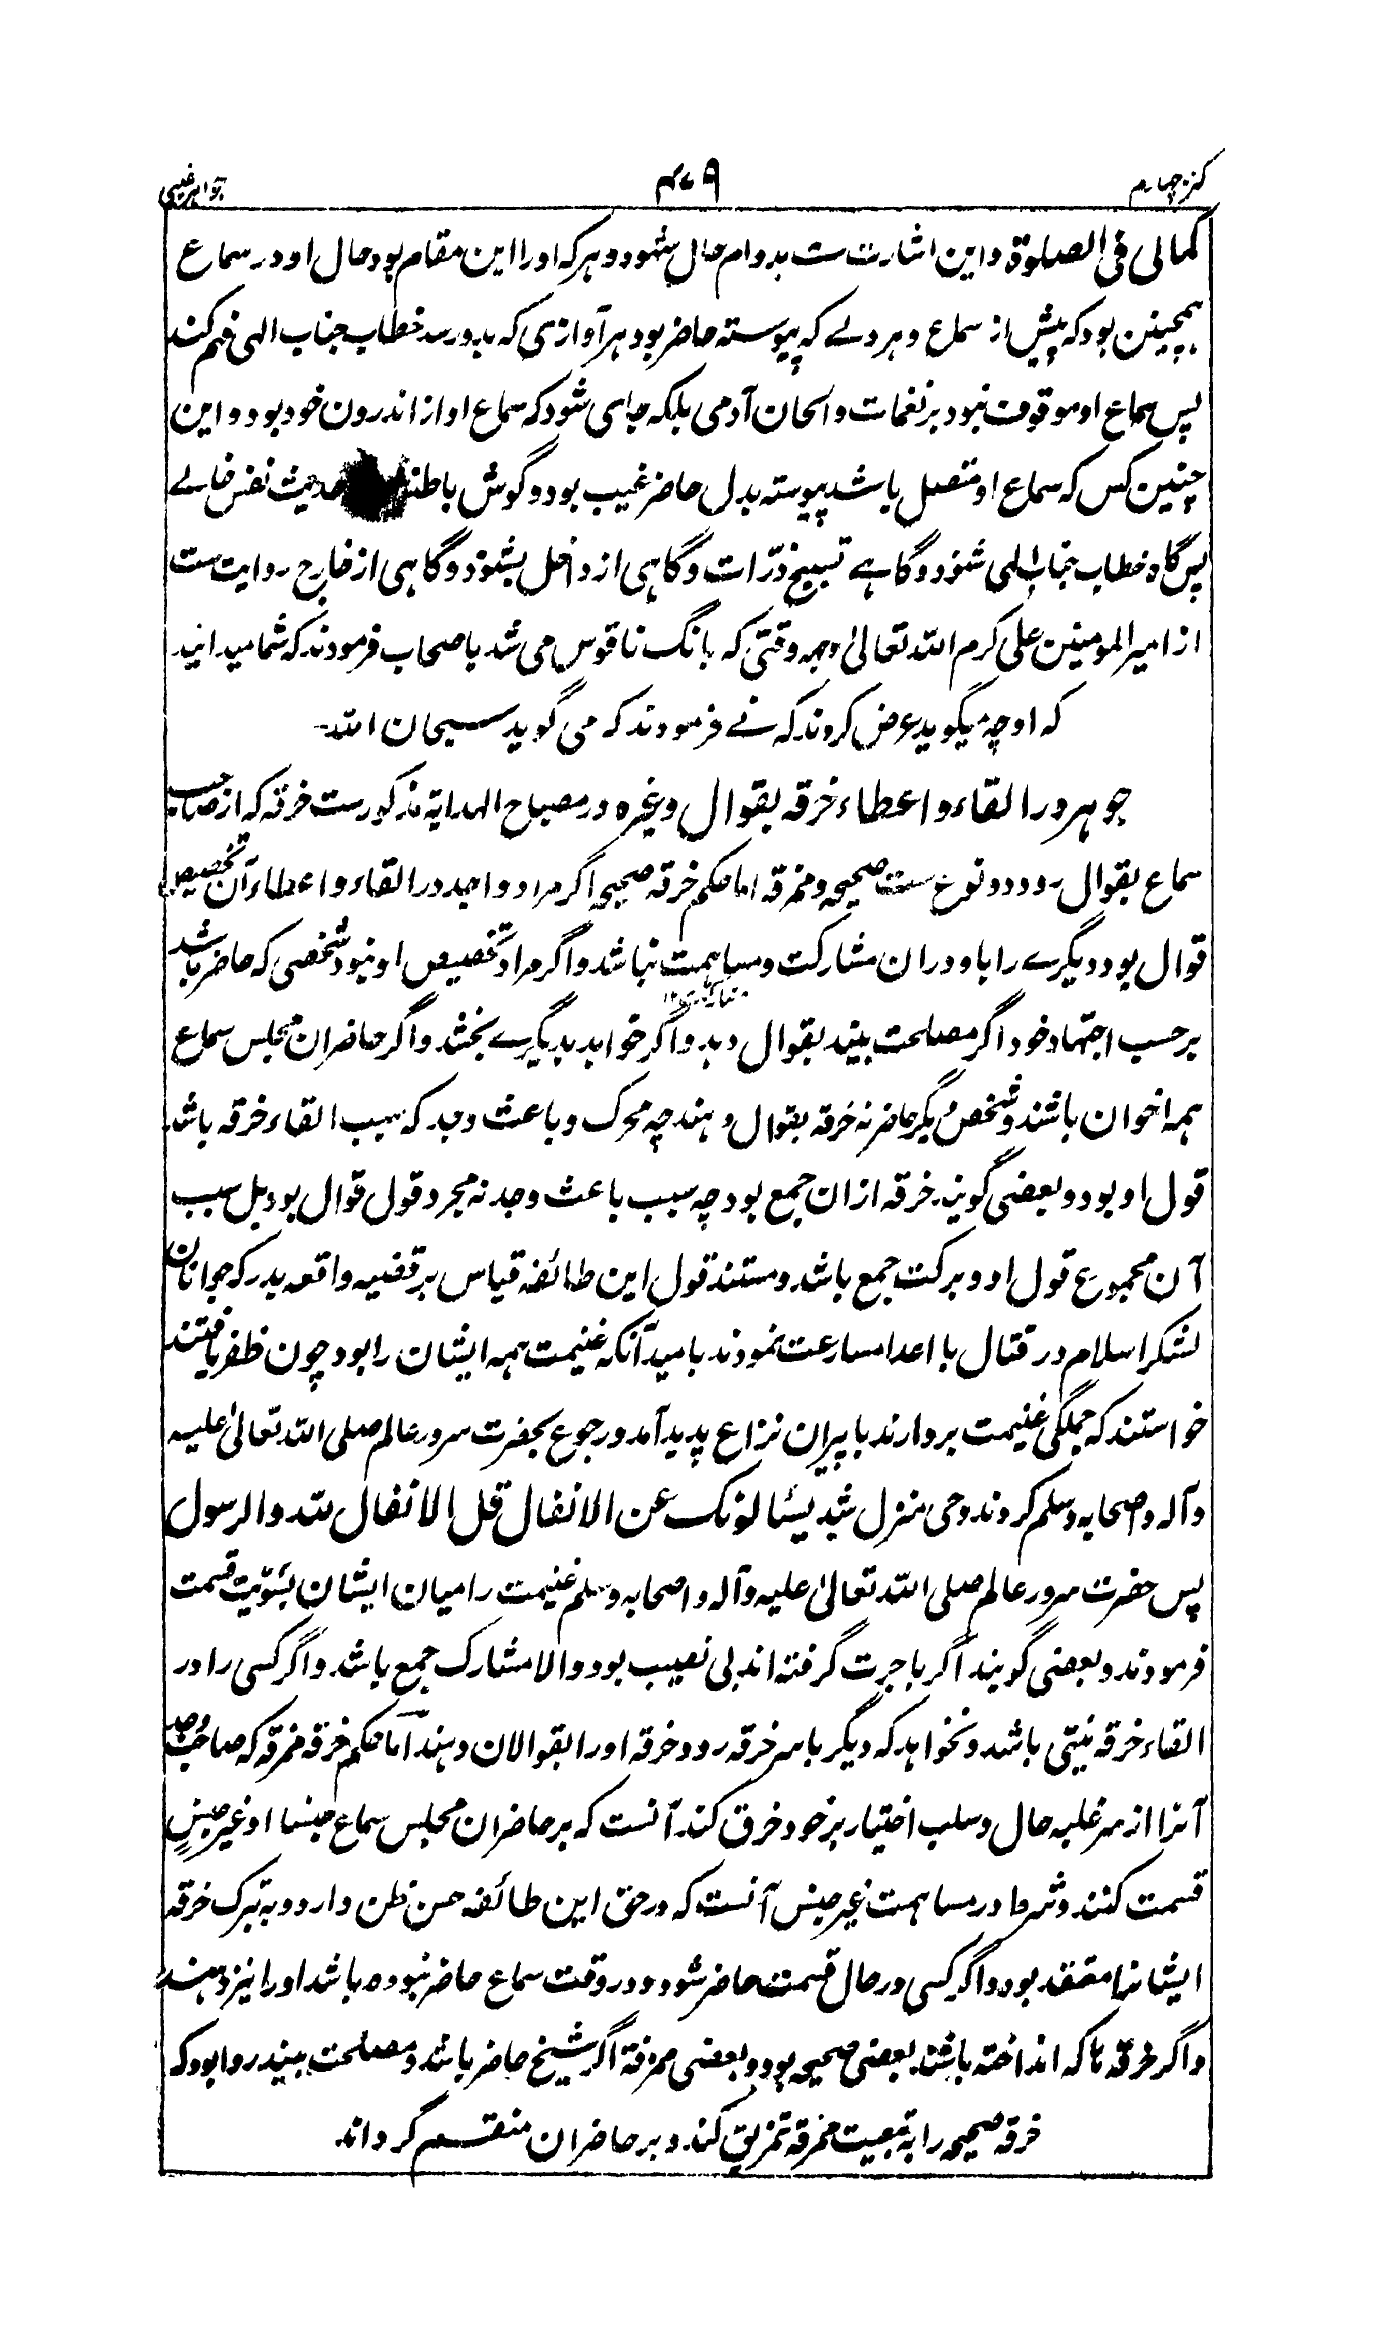 کنز چهارم ۴۷۹ جواهر غیبی
کمالی فی الصلوة و این اشارت ست بدوام حال شهود و هر که اورا این مقام بود حال او در سماع
همچنین بود که پیش از سماع و هر دلے که پیوسته حاضر بود هر آوازی که بدو رسد خطاب جناب الهی فهم کند
پس سماع او موقوف نبود بر نغمات و الحان آدمی بلکه جای شود که سماع او از اندرون خود بود و این
چنین کس که سماع او متصل باشد پیوسته بدل حاضر غیب بود و گوش باطنش حدیث نفس خالے
پس گاه خطاب جناب الهی شنود و گاہے تسبیح ذرّات و گاهی از داخل بشنود و گاهی از خارج روایت ست
از امیر المومنین علی کرم الله تعالیٰ وجهه وقتی که بانگ ناقوس می شد باصحاب فرمودند که شما میدانید
که او چه میگوید عرض کردند که نے فرمودند که می گوید سبحان الله۔
جوهر در القاء و اعطاء خرقه بقوال وغیره در مصباح الهدایة مذکورست خرقه که از صاحب
سماع بقوال رود دو نوع ست صحیحه و مخرقه اما حکم خرقه صحیحه اگر مراد واجد در القاء و اعطاء آن تخصیص
قوال بود دیگرے را با و دران مشارکت و مساهمت نباشد و اگر مراد تخصیص او نبود شخصی که حاضر باشد
بر حسب اجتهاد خود اگر مصلحت بیند بقوال دهد و اگر خواهد بدیگرے بخشد و اگر حاضران مجلس سماع
همه اخوان باشند و شخص دیگر حاضر نه خرقه بقوال دهند چه محرک و باعث وجد که سبب القاء خرقه باشد
قول او بود و بعضی گویند خرقه ازان جمع بود چه سبب باعث وجد نه مجرد قول قوال بود بل سبب
آن مجموع قول او و برکت جمع باشد و مستند قول این طائفه قیاس بر قضیه واقعه بدر که جوانان
لشکر اسلام در قتال با اعدا مسارعت نمودند بامید آنکه غنیمت همه ایشان را بود چون ظفر یافتند
خواستند که جملگی غنیمت بردارند با پیران نزاع پدید آمد و رجوع بحضرت سرور عالم صلی الله تعالیٰ علیه
و آله و اصحابه وسلم کردند وحی منزل شد یسئالونک عن الانفال قل الانفال لله والرسول
پس حضرت سرور عالم صلی الله تعالیٰ علیه و آله و اصحابه وسلم غنیمت را میان ایشان بسویّت قسمت
فرمودند و بعضی گویند اگر باجرت گرفته اند بی نصیب بود و الا مشارک جمع باشد و اگر کسی را در
القاء خرقه نیتی باشد و نخواهد که دیگر با سر خرقه رود خرقه اورا بقوالان دهند اما حکم خرقه مخرقه که صاحب وجد
آنرا از سر غلبه حال و سلب اختیار بر خود خرق کند آنست که بر حاضران مجلس سماع جنسا او غیر جنس
قسمت کنند و شرط در مساهمت غیر جنس آنست که در حق این طائفه حسن ظن دارد و به تبرک خرقه
ایشانرا معتقد بود و اگر کسی در حال قسمت حاضر شود و در وقت سماع حاضر نبوده باشد اورا نیز دهند
و اگر خرقه ها که انداخته باشند بعضی صحیحه بود و بعضی ممزقة اگر شیخ حاضر باشد و مصلحت بیند روا بود که
خرقه صحیحه را به تبعیت مخرقه تمزیق کند و بر حاضران منقسم گرداند